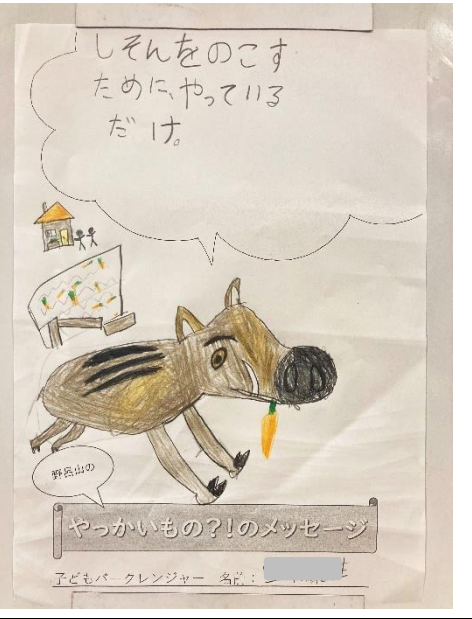 しそんをのこす
ために、やっている
だけ。
野呂山の
やっかいもの?!のメッセージ
子どもパークレンジャー 名前：